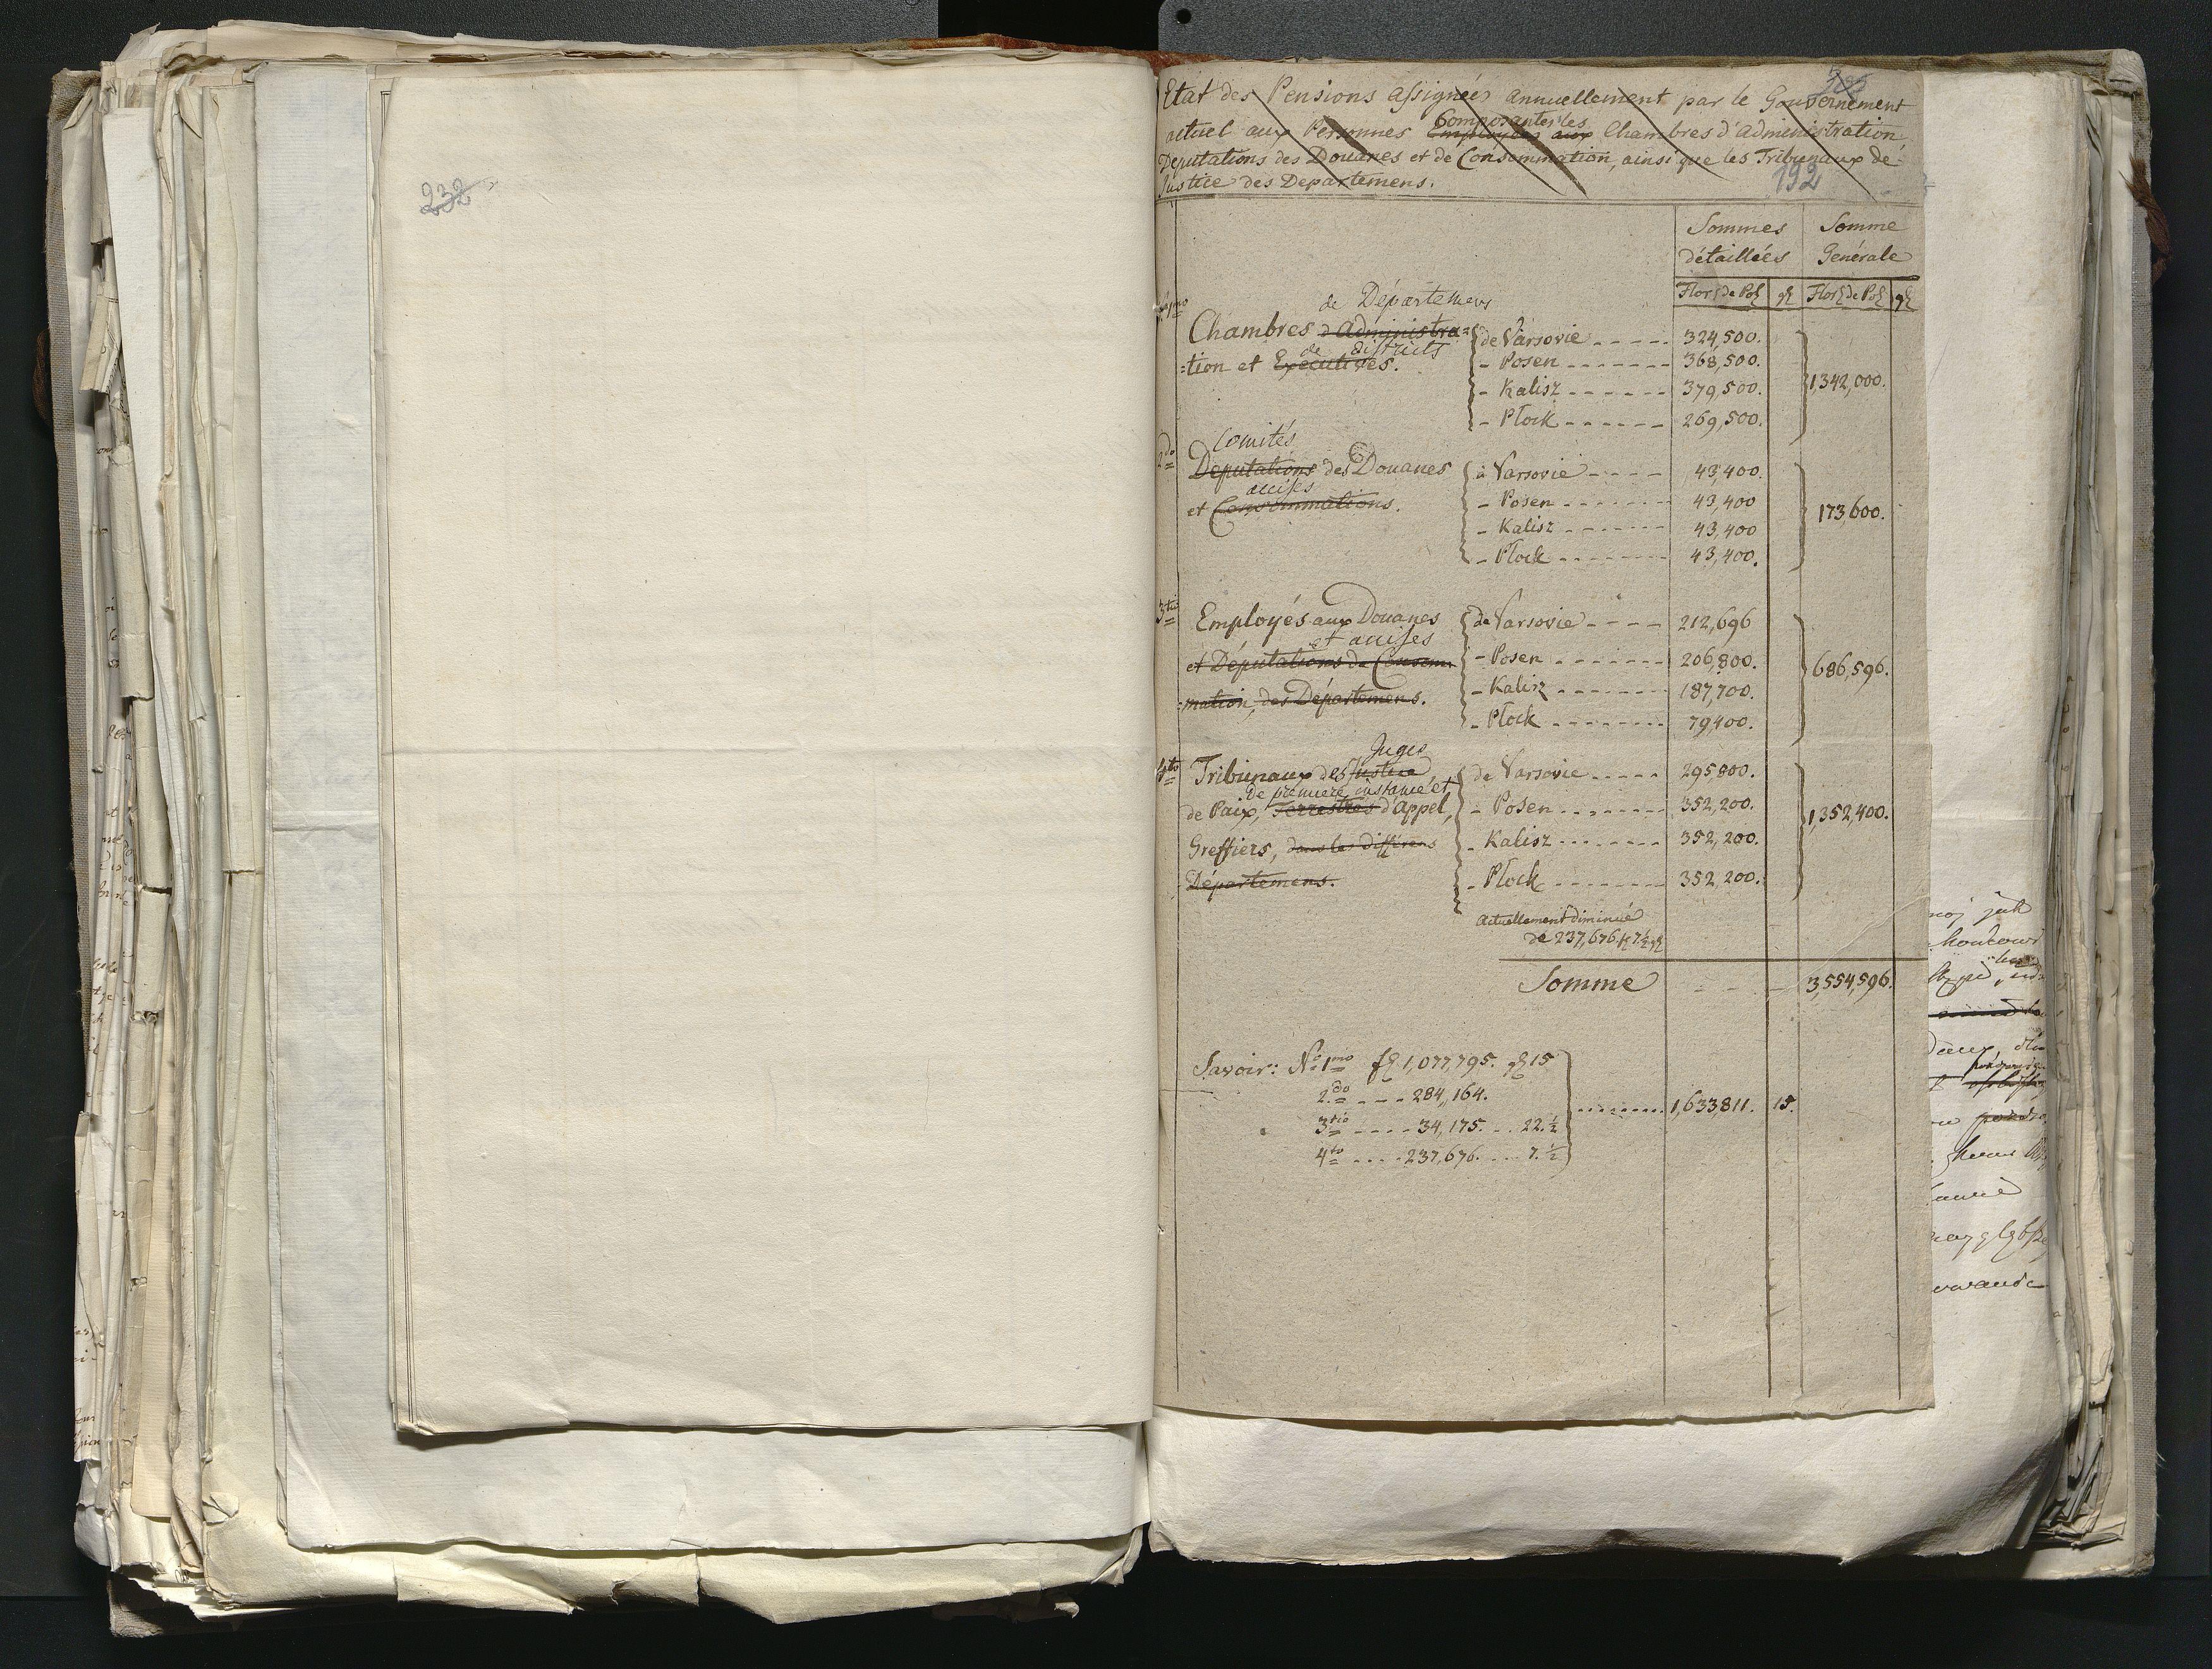 232
Etat des Pensions assignées annuellement par le Gouvernement
Composantes les
actuel aux Personnes Employées aux Chambres d'administration,
Deputations des Douanes et de Consommation, ainsi que les Tribunaux de
Justice des Departemens.
192
Sommes détaillées
Somme Générale
Flor: de Pol: gl
Flor: de Pol: gl
1mo
de Départemens
Chambres d'Administra=
de districts
=tion et Executives.
de Varsovie 324,500.
- Posen 368,500.
- Kalisz 379,500.
- Płock 269,500.
1,342,000.
2do
Comités
Deputations des Douanes
accises
et Consommations.
à Varsovie 43,400.
- Posen 43,400
- Kalisz 43,400
- Płock 43,400.
173,600.
3tio
Employés aux Douanes
et accises
et Députations de Consom=
=mation, des Départemens.
de Varsovie 212,696
- Posen 206,800.
- Kalisz 187,700.
- Płock 79,400.
686,596.
4to
Juges
Tribunaux des Justice,
de premiere instance et
de Paix, Terrestres d'appel,
Greffiers, dans les différens
Départemens.
de Varsovie 295,800.
- Posen 352,200.
- Kalisz 352,200.
- Płock 352,200.
1,352,400.
Actuellement diminué
de 237,676 f 7½ gl
Somme 3,554,596.
Savoir: No 1mo fl 1,077,795. gl 15
2do 284,164.
3tio 34,175. 22.½
4to 237,676. 7.½
1,633,811. 15.